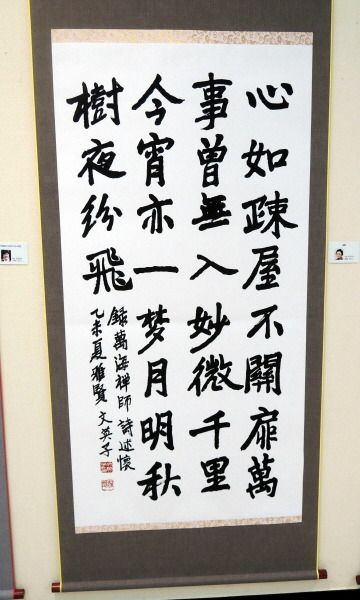 心如疎屋不關扉萬
事曾無入妙微千里
今宵亦一梦月明秋
樹夜纷飛
錄萬海禅師詩述懷
乙未夏雅賢文英子